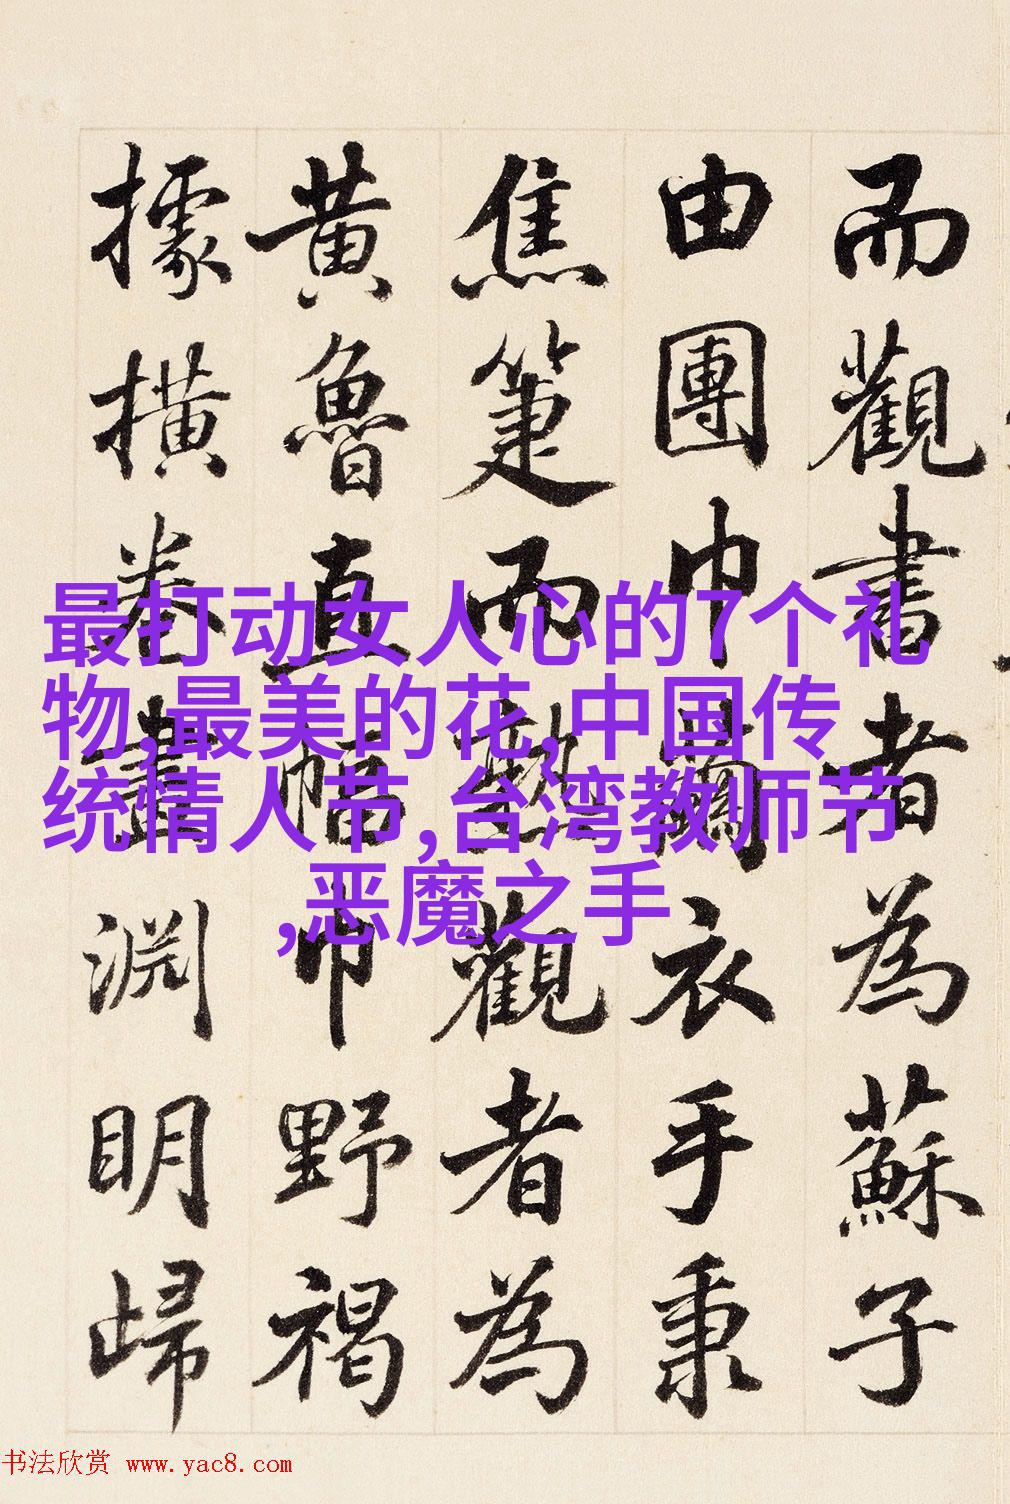 而觀書者為蘇子
由團巾繭衣手秉
焦箑而熟觀者為
黄魯直幅巾野褐
據撗卷畫淵明歸
最打动女人心的7个礼
物,最美的花,中国传
统情人节,台湾教师节
,恶魔之手
书法欣赏 www.yac8.com